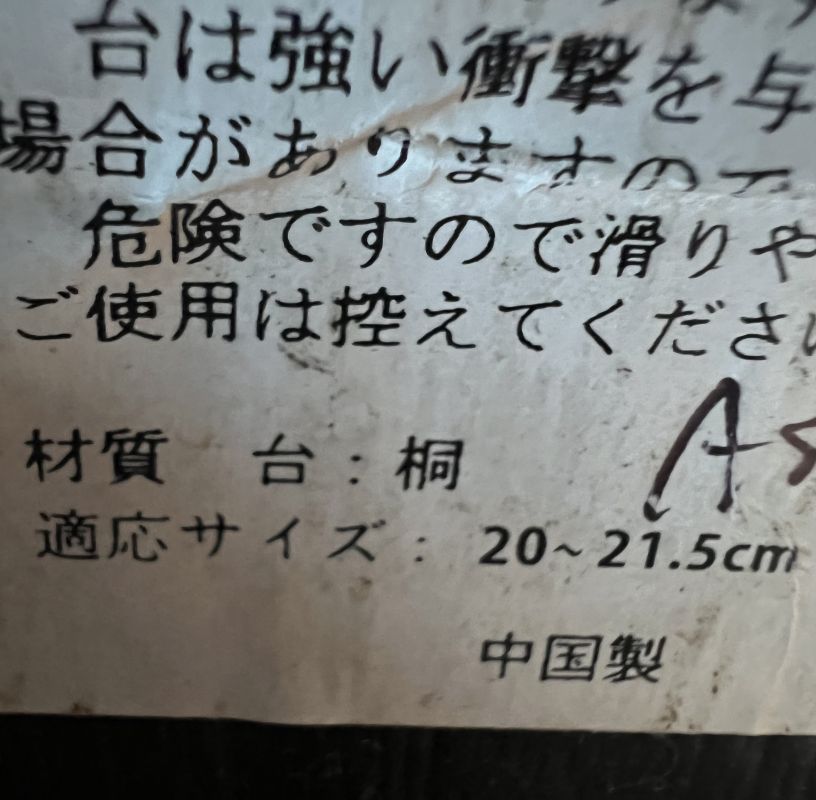 台は強い衝撃を与
場合がありますので
危険ですので滑りや
ご使用は控えてくださ
材質　台：桐
適応サイズ：20~21.5cm
中国製